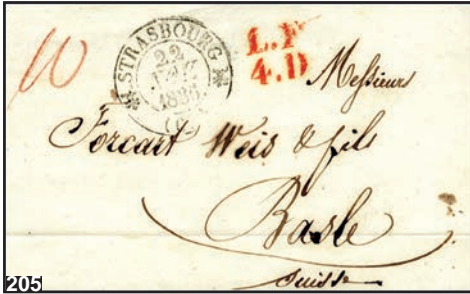 STRASBOURG
22
L.F
4.D
Messieurs
Forcart Weis & fils
Basle
Suisse
205